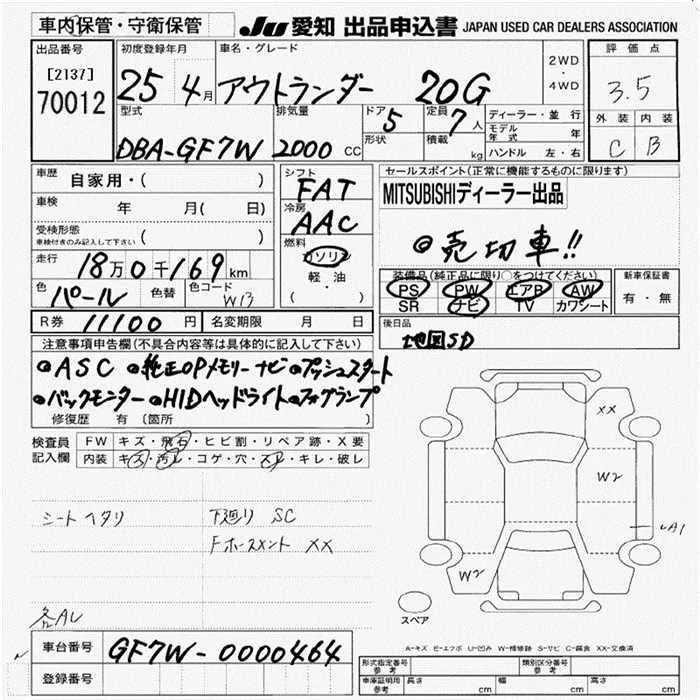 車内保管・守衛保管
JU 愛知 出品申込書 JAPAN USED CAR DEALERS ASSOCIATION
出品番号
[2137]
70012
初度登録年月
25 4月
車名・グレード
アウトランダー 20G
2WD
・
4WD
評価点
3.5
外装 内装
C B
型式
DBA-GF7W
排気量
2000 CC
ドア 5
形状
定員 7人
積載 kg
ディーラー・並行
モデル年式 年
ハンドル 左・右
車歴 自家用・( )
車検 年 月( 日)
受検形態
車検付きのみ記入して下さい ( )
走行 18万0千169km
色 パール 色替 色コード W13
シフト
FAT
冷房
AAC
燃料
ガソリン
軽・油
( )
セールスポイント(正常に機能するものに限ります)
MITSUBISHIディーラー出品
◎売切車!!
装備品(純正品に限り○をつけてください)
PS PW エアB AW
SR ナビ TV カワシート
新車保証書
有・無
R券 11100円 名変期限 月 日
後日品
地図SD
注意事項申告欄(不具合内容等は具体的に記入して下さい)
◎ASC ◎純正OPメモリーナビ ◎プッシュスタート
◎バックモニター ◎HIDヘッドライト ◎フォグランプ
修復歴 有 (箇所 )
検査員記入欄
FW キズ・飛石・ヒビ割・リペア跡・X要
内装 キズ・汚レ・コゲ・穴・スレ・キレ・破レ
シートヘタリ
下廻り SC
Fホースメント XX
各AU
XX
W2
A1
W2
スペア
A-キズ E-エクボ U-凹み W-補修跡 S-サビ C-腐食 XX-交換済
車台番号 GF7W-0000464
登録番号
形式指定番号 参考
類別区分番号 参考
車庫証明用 参考 長さ cm 幅 cm 高さ cm